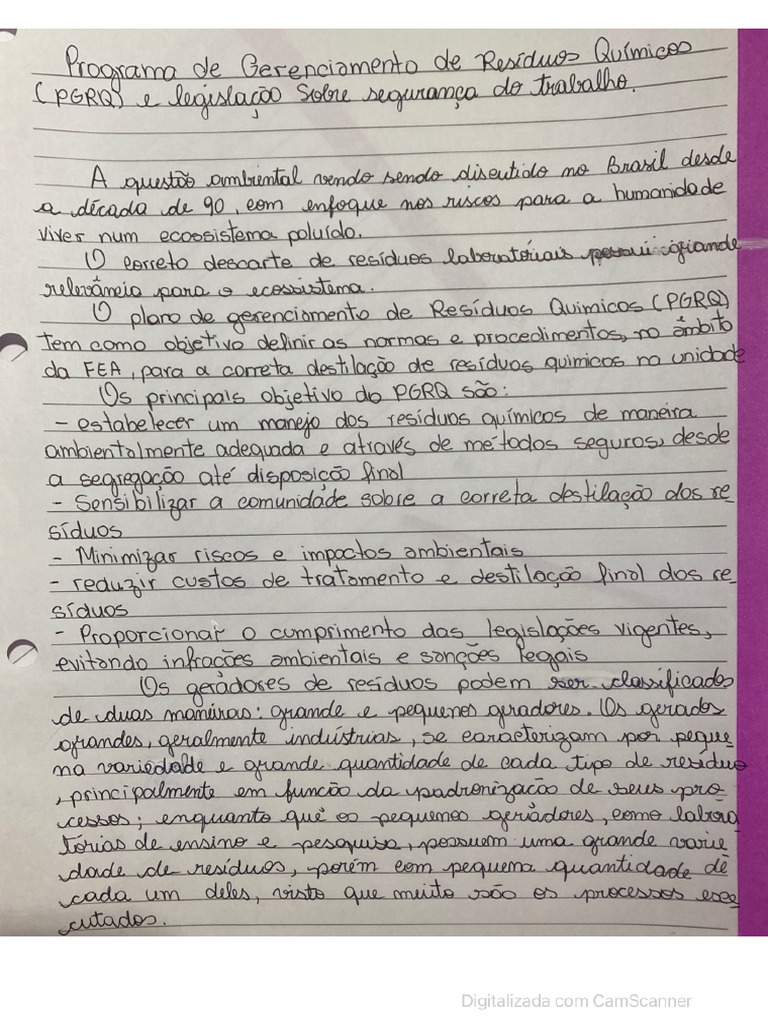 Programa de Gerenciamento de Resíduos Químicos
(PGRQ) e legislação sobre segurança do trabalho.
A questão ambiental vendo sendo discutido no Brasil desde
a década de 90, com enfoque nos riscos para a humanidade
viver num ecossistema poluído.
O correto descarte de resíduos laboratoriais possui grande
relevância para o ecossistema.
O plano de gerenciamento de Resíduos Químicos (PGRQ)
tem como objetivo definir as normas e procedimentos, no âmbito
da FEA, para a correta destilação de resíduos químicos na unidade
Os principais objetivo do PGRQ são:
- estabelecer um manejo dos resíduos químicos de maneira
ambientalmente adequada e através de métodos seguros, desde
a segregação até disposição final
- Sensibilizar a comunidade sobre a correta destilação dos re
síduos
- Minimizar riscos e impactos ambientais
- reduzir custos de tratamento e destilação final dos re_
síduos
- Proporcionar o cumprimento das legislações vigentes,
evitando infrações ambientais e sanções legais
Os geradores de resíduos podem ser classificados
de duas maneiras: grande e pequenos geradores. Os gerados
grandes, geralmente indústrias, se caracterizam por peque_
na variedade e grande quantidade de cada tipo de resíduo
, principalmente em função da padronização de seus pro
cessos; enquanto que os pequenos geradores, como labora
tórias de ensino e pesquisa, possuem uma grande varie
dade de resíduos, porém com pequena quantidade de
cada um deles, visto que muito são os processos exe_
cutados.
Digitalizada com CamScanner